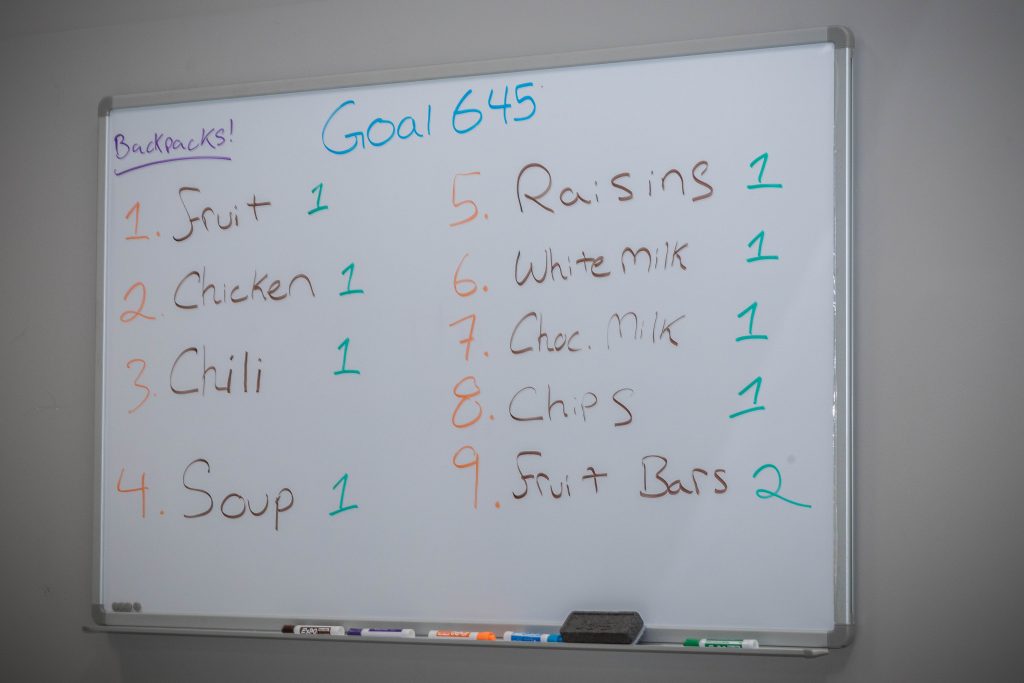 Backpacks!
Goal 645
1. Fruit 1
2. Chicken 1
3. Chili 1
4. Soup 1
5. Raisins 1
6. White Milk 1
7. Choc. Milk 1
8. Chips 1
9. Fruit Bars 2
EXPO